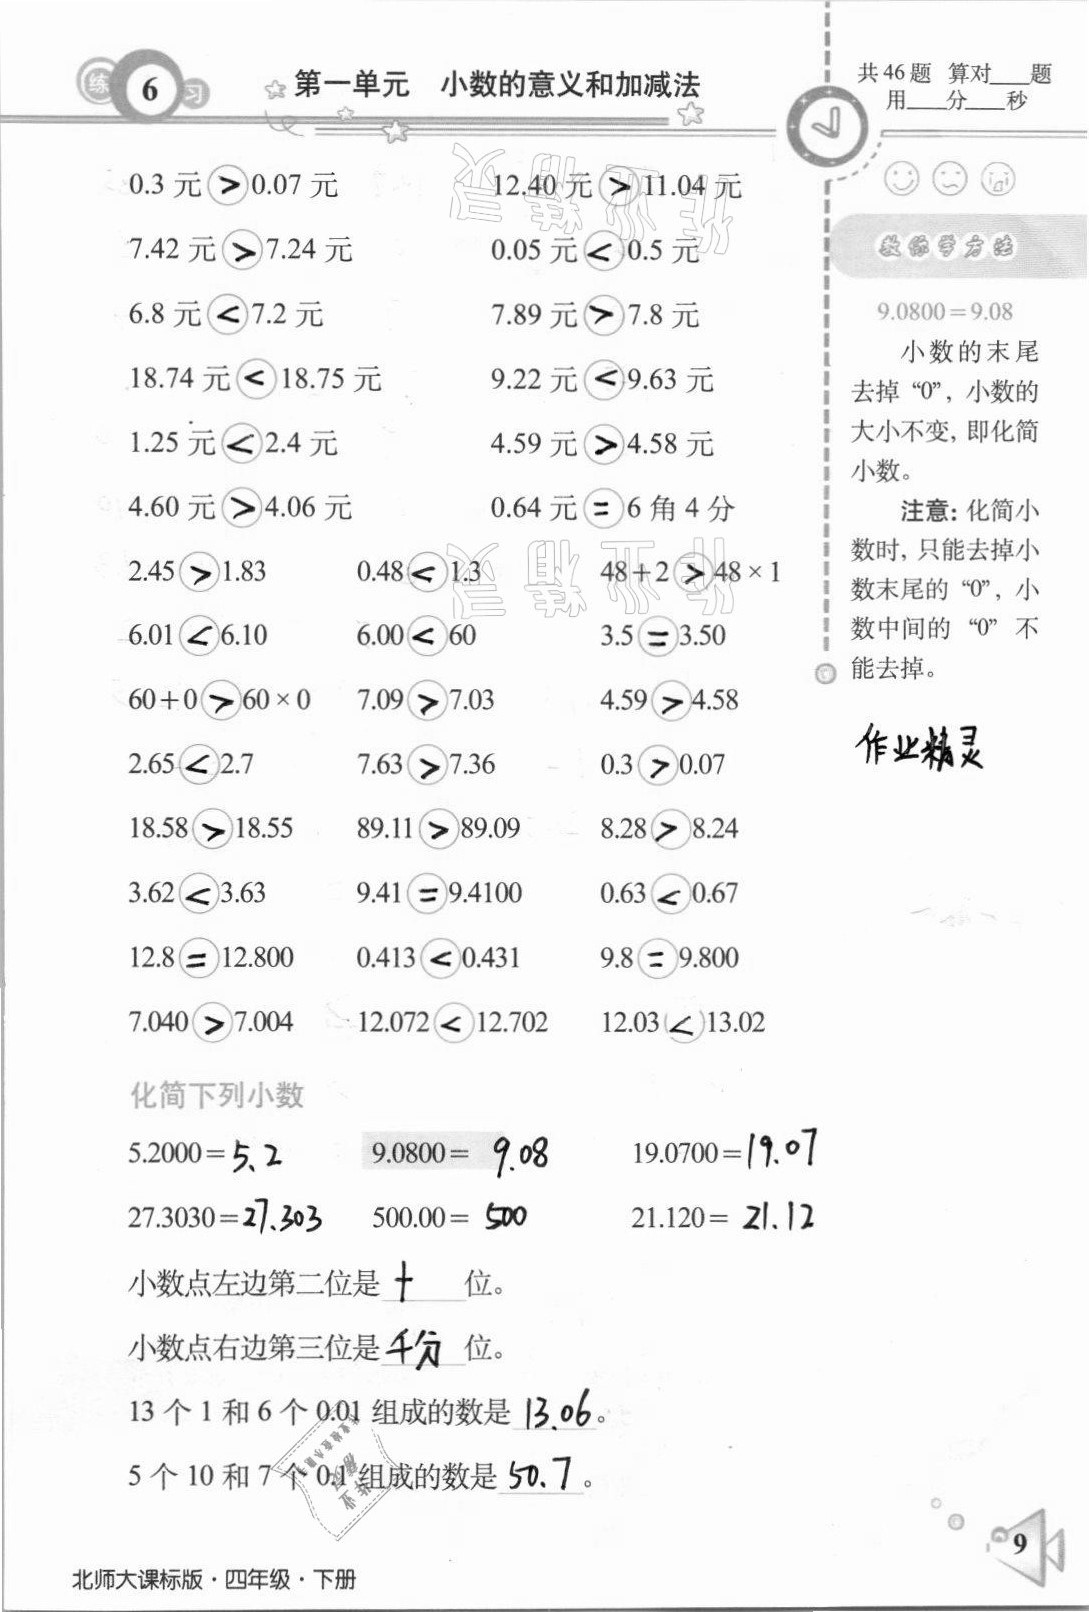 练 6 习
第一单元 小数的意义和加减法
共46题 算对___题
用___分___秒
0.3元>0.07元 12.40元>11.04元
7.42元>7.24元 0.05元<0.5元
6.8元<7.2元 7.89元>7.8元
18.74元<18.75元 9.22元<9.63元
1.25元<2.4元 4.59元>4.58元
4.60元>4.06元 0.64元=6角4分
2.45>1.83 0.48<1.3 48+2>48×1
6.01<6.10 6.00<60 3.5=3.50
60+0>60×0 7.09>7.03 4.59>4.58
2.65<2.7 7.63>7.36 0.3>0.07
18.58>18.55 89.11>89.09 8.28>8.24
3.62<3.63 9.41=9.4100 0.63<0.67
12.8=12.800 0.413<0.431 9.8=9.800
7.040>7.004 12.072<12.702 12.03<13.02
化简下列小数
5.2000=5.2 9.0800=9.08 19.0700=19.07
27.3030=27.303 500.00=500 21.120=21.12
小数点左边第二位是十位。
小数点右边第三位是千分位。
13个1和6个0.01组成的数是13.06。
5个10和7个0.1组成的数是50.7。
教你学方法
9.0800=9.08
小数的末尾
去掉“0”，小数的
大小不变，即化简
小数。
注意：化简小
数时，只能去掉小
数末尾的“0”，小
数中间的“0”不
能去掉。
作业精灵
灵精业作
灵精业作
北师大课标版·四年级·下册
9